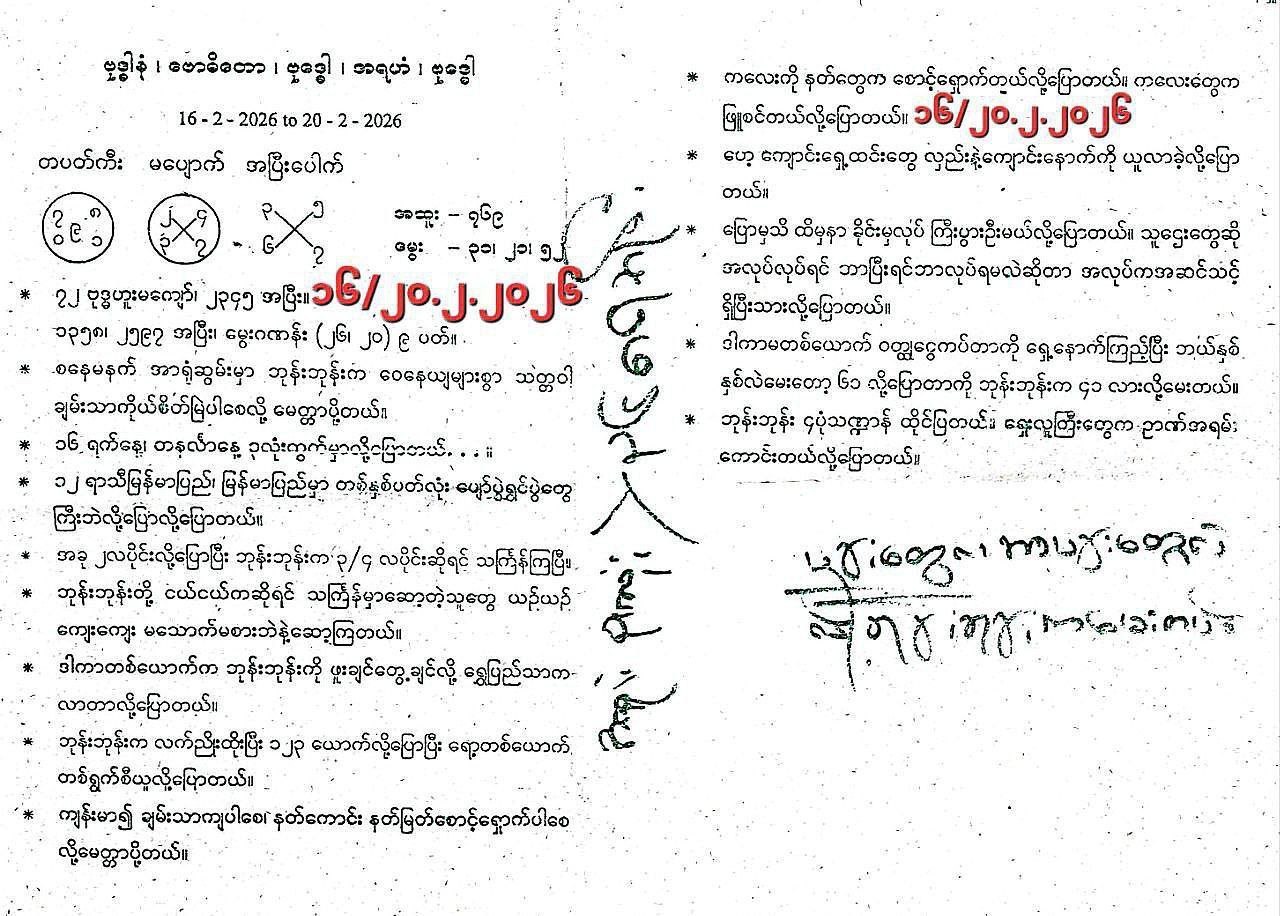 ဗုဒ္ဓါနံ၊ ဗောဓိတော၊ ဗုဒ္ဓေါ၊ အရဟံ၊ ဗုဒ္ဓေါ
16 - 2 - 2026 to 20 - 2 - 2026
တပတ်ကီး မပျောက် အပြီးပေါက်
၇ ၈ ၉ ၀ ၁
၂ ၄ ၃ ၇
၃ ၅ ၆ ၇
အထူး – ၇၆၉
မွေး – ၃၁၊ ၂၁၊ ၅၂
* ၇၂ ဗုဒ္ဓဟူးမကျော်၊ ၂၃၄၅ အပြီး။ ၁၆/၂၀.၂.၂၀၂၆
၁၃၅၈၊ ၂၅၉၇ အပြီး၊ မွေးဂဏန်း (၂၆၊ ၂၀) ၉ ပတ်။
* စနေမနက် အာရုံဆွမ်းမှာ ဘုန်းဘုန်းက ဝေနေယျများစွာ သတ္တဝါ
ချမ်းသာကိုယ်စိတ်မြဲပါစေလို့ မေတ္တာပို့တယ်။
* ၁၆ ရက်နေ့၊ တနင်္လာနေ့ ၃လုံးကွက်မှာလို့ပြောတယ်. . . ။
* ၁၂ ရာသီမြန်မာပြည်၊ မြန်မာပြည်မှာ တစ်နှစ်ပတ်လုံး ပျော်ပွဲရွှင်ပွဲတွေ
ကြီးဘဲလို့ပြောလို့ပြောတယ်။
* အခု ၂လပိုင်းလို့ပြောပြီး ဘုန်းဘုန်းက ၃/၄ လပိုင်းဆိုရင် သင်္ကြန်ကြပြီ။
* ဘုန်းဘုန်းတို့ ငယ်ငယ်ကဆိုရင် သင်္ကြန်မှာဆော့တဲ့သူတွေ ယဉ်ယဉ်
ကျေးကျေး မသောက်မစားဘဲနဲ့ဆော့ကြတယ်။
* ဒါကာတစ်ယောက်က ဘုန်းဘုန်းကို ဖူးချင်တွေ့ချင်လို့ ရွှေပြည်သာက
လာတာလို့ပြောတယ်။
* ဘုန်းဘုန်းက လက်ညှိုးထိုးပြီး ၁၂၃ ယောက်လို့ပြောပြီး ရော့တစ်ယောက်
တစ်ရွက်စီယူလို့ပြောတယ်။
* ကျန်းမာ၍ ချမ်းသာကျပါစေ၊ နတ်ကောင်း နတ်မြတ်စောင့်ရှောက်ပါစေ
လို့မေတ္တာပို့တယ်။
* ကလေးကို နတ်တွေက စောင့်ရှောက်တယ်လို့ပြောတယ်။ ကလေးတွေက
ဖြူစင်တယ်လို့ပြောတယ်။ ၁၆/၂၀.၂.၂၀၂၆
* ဟေ့ ကျောင်းရှေ့ထင်းတွေ လှည်းနဲ့ကျောင်းနောက်ကို ယူလာခဲ့လို့ပြော
တယ်။
* ပြောမှသိ ထိမှနာ ခိုင်းမှလုပ် ကြီးပွားဦးမယ်လို့ပြောတယ်။ သူဌေးတွေဆို
အလုပ်လုပ်ရင် ဘာပြီးရင်ဘာလုပ်ရမလဲဆိုတာ အလုပ်ကအဆင်သင့်
ရှိပြီးသားလို့ပြောတယ်။
* ဒါကာမတစ်ယောက် ဝတ္ထုငွေကပ်တာကို ရှေ့နောက်ကြည့်ပြီး ဘယ်နှစ်
နှစ်လဲမေးတော့ ၆၁ လို့ပြောတာကို ဘုန်းဘုန်းက ၄၁ လားလို့မေးတယ်။
* ဘုန်းဘုန်း ၄ပုံသဏ္ဌာန် ထိုင်ပြတယ်။ ရှေးလူကြီးတွေက ဉာဏ်အရမ်း
ကောင်းတယ်လို့ပြောတယ်။